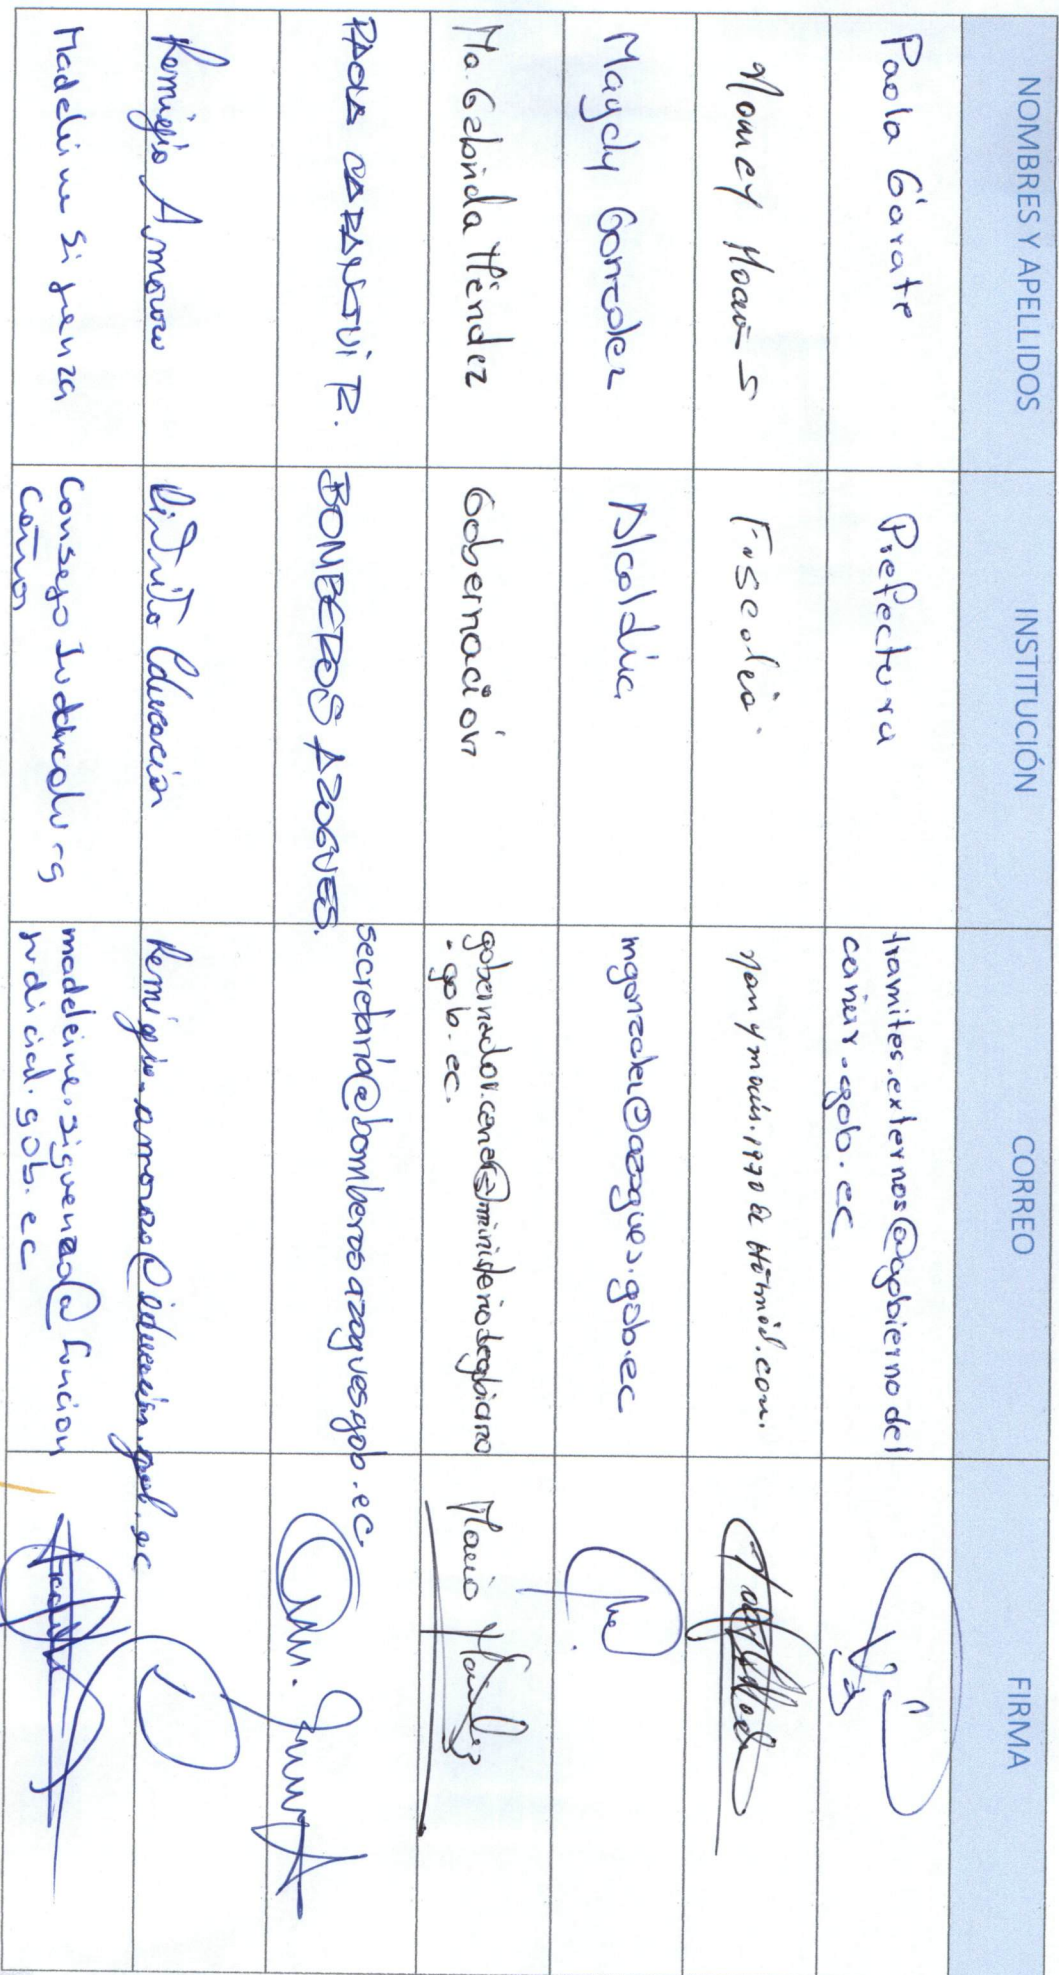 NOMBRES Y APELLIDOS INSTITUCIÓN CORREO FIRMA
Paola Gárate Prefectura tramites.externos@gobierno del
cañar.gob.ec
Nancy Fiscalía.
Maydy Gonzalez Alcaldía mgonzalez@azogues.gob.ec
Ma. Gabriela Méndez Gobernación gobernador.canar@ministeriodegobierno
.gob.ec.
PAOLA CARANGUI R. BOMBEROS AZOGUES. secretaria@bomberosazogues.gob.ec.
Remigio Amoroso Distrito Educación Remigio.amoroso@educacion.gob.ec
Madeleine Siguenza Consejo Judicatura madeleine.siguenza@funcion
Cañar judicial.gob.ec